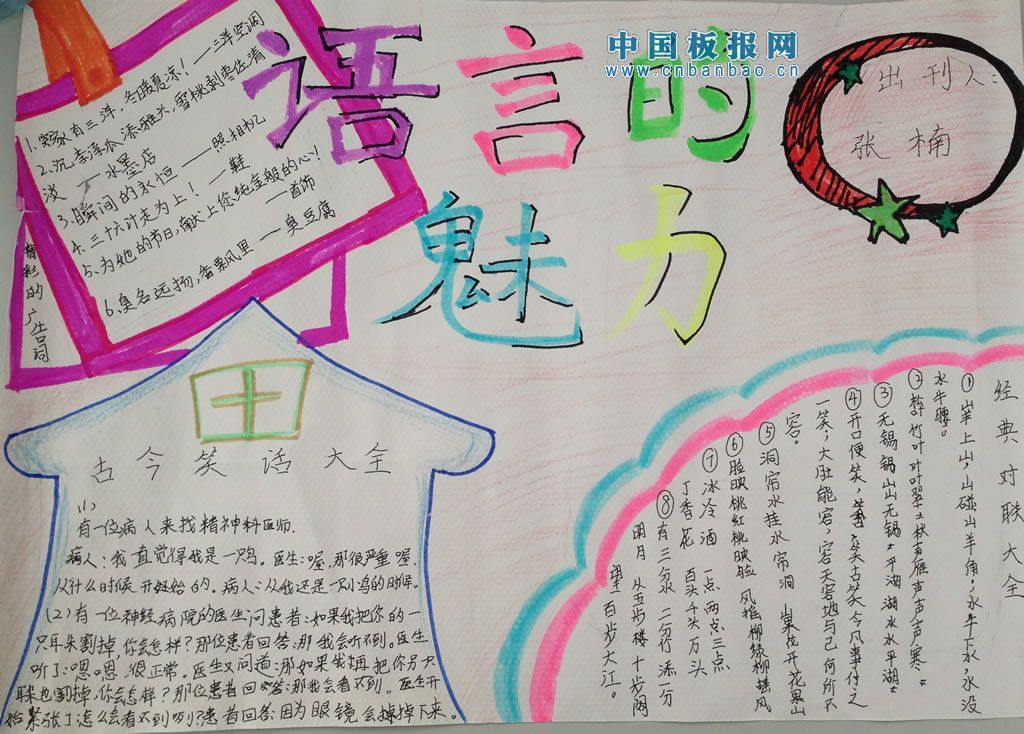 中国板报网
www.cnbanbao.cn
语言的
魅力
出刊人：
张楠
精彩的广告词
1.家有三洋，冬暖夏凉！——三洋空调
2.沉李浮水添雅兴，雪桃剥枣佐清
淡——水墨店
3.瞬间的永恒——照相机
4.三十六计走为上！——鞋
5.为她的节日，献上您纯金般的心！
——首饰
6.臭名远扬，香飘风里——臭豆腐
古今笑话大全
(1)
有一位病人来找精神科医师.
病人：我直觉得我是一只鸟。医生：喔，那很严重喔，
从什么时候开始的。病人：从我还是一只小鸟的时候.
(2)有一位神经病院的医生问患者：如果我把你的一
只耳朵割掉，你会怎样？那位患者回答：那我会听不到。医生
听了：嗯嗯，很正常。医生又问道：那如果我再把你另一只
耳朵也割掉，你会怎样？那位患者回答：那我会看不到。医生开
始紧张了怎么会看不到呀？患者回答：因为眼镜会掉掉下来。
经典对联大全
①山羊上山，山碰山羊角；水牛下水，水没
水牛腰。
②竹叶叶叶翠 秋声雁声声声寒。
③无锡锡山山无锡 平湖湖水水平湖
④开口便笑，笑古笑今凡事付之
一笑；大肚能容，容天容地与己何所不
容。
⑤洞帘水挂水帘洞 山果花开花果山
⑥脸映桃红桃映脸 风摇柳绿柳摇风
⑦冰冷酒 一点两点三点
丁香花 百头千头万头
⑧有三分水 二分竹 添一分
明月 从五步楼 十步阁
望百步大江。